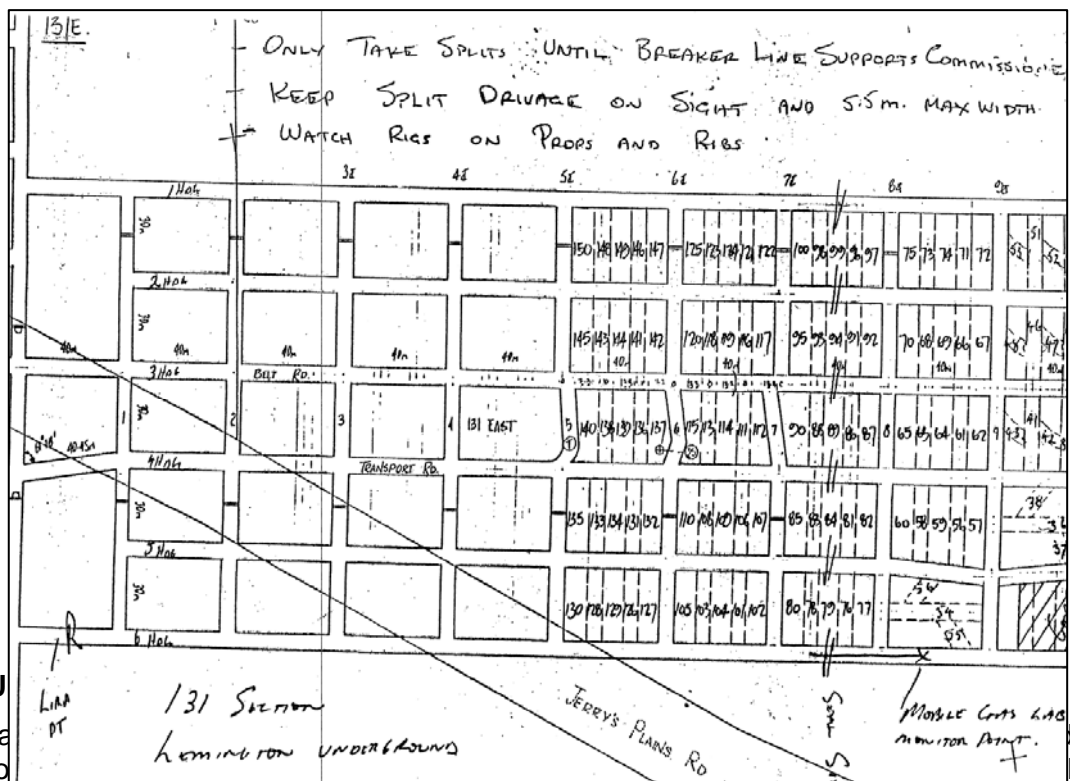 131E.
- ONLY TAKE SPLITS UNTIL BREAKER LINE SUPPORTS COMMISSIONE
- KEEP SPLIT DRIVAGE ON SIGHT AND 5.5m. MAX WIDTH
- WATCH RIGS ON PROPS AND RIBS
1 HDG
30m
150 148 149 146 147 125 123 124 121 122 100 98 99 96 97 75 73 74 71 72 51 52
2 HDG
30m
145 143 144 141 142 120 118 119 116 117 95 93 94 91 92 70 68 69 66 67 46 47
40m 40m 40m 40m 40m 40m 40m 40m 40m 40m
3 HDG BELT RD.
30m
1 2 3 4 131 EAST 5 140 138 139 136 137 6 115 113 114 111 112 7 90 88 89 86 87 8 65 63 64 61 62 9 41 42
4 HDG TRANSPORT RD.
30m
135 133 134 131 132 110 108 109 106 107 85 83 84 81 82 60 58 59 56 57 38 37
5 HDG
30m
130 128 129 126 127 105 103 104 101 102 80 78 79 76 77 54
6 HDG
131 SECTION
LEMINGTON UNDERGROUND
JERRY'S PLAINS RD
MOBILE GAS LAB
MONITOR POINT.